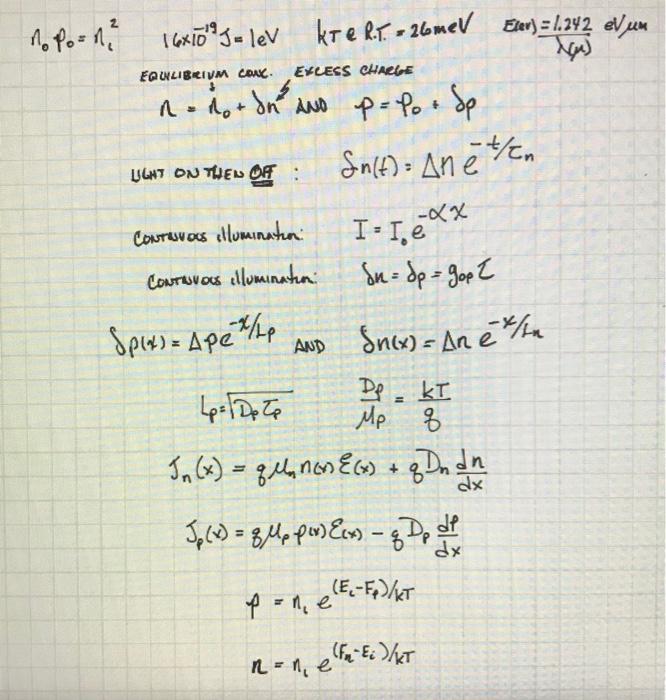 n₀ p₀ = nᵢ²   1.6x10⁻¹⁹ J = 1eV   kT @ R.T. = 26meV   E(eV) = 1.242 eV μm / λ(μ)
EQUILIBRIUM CONC.   EXCESS CHARGE
n = n₀ + δn AND p = p₀ + δp
LIGHT ON THEN OFF : δn(t) = Δn e^(-t/τₙ)
CONTINUOUS illumination: I = I₀ e^(-αx)
CONTINUOUS illumination: δn = δp = gop τ
δp(x) = Δp e^(-x/Lp) AND δn(x) = Δn e^(-x/Ln)
Lp = √(Dp τp)   Dp/μp = kT/q
Jn(x) = q μn n(x) ℰ(x) + q Dn dn/dx
Jp(x) = q μp p(x) ℰ(x) - q Dp dp/dx
p = nᵢ e^((Eᵢ-Fp)/kT)
n = nᵢ e^((Fn-Eᵢ)/kT)